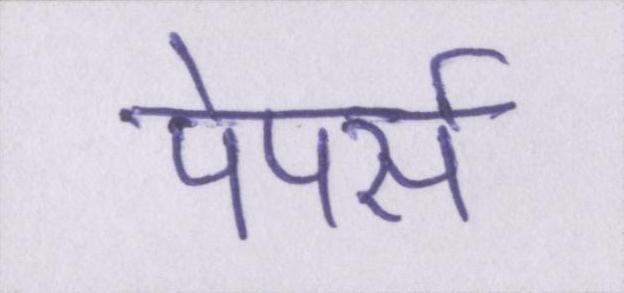 पेपर्स